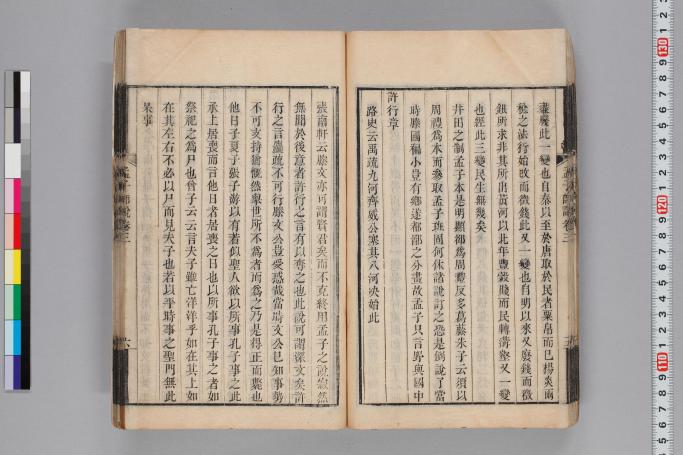 盡廢此一變也自秦以至於唐取於民者粟帛而已楊炎兩
稅之法行始改而徵錢此又一變也自明以來又廢錢而徵
銀所求非其所出黃河以北年豐穀賤而民轉溝壑又一變
也經此三變民生無幾矣
井田之制孟子本是明顯卻為周禮反多葛藤朱子云須以
周禮為本而參取孟子班固何休諸說訂之恐是倒說了當
時滕國褊小豈有鄉遂都鄙之分畫故孟子只言野與國中
許行章
路史云禹疏九河齊威公塞其八河決始此
張南軒云滕文亦可謂賢君矣而不克終用孟子之說寂然
無聞於後意者許行之言有以奪之也此說可謂深文矣許
行之言麤疏不可行滕文公豈受惑哉當時文公已知事勢
不可支持猶慨然舉世所不為者而為之乃是得正而斃也
他日子夏子張子游以有若似聖人欲以所事孔子事之此
承上居喪而言他日者居喪之日也以所事孔子事之者如
祭祀之為尸也曾子云云言夫子雖亡洋洋乎如在其上如
在其左右不必以尸而見夫子也若以平時事之聖門無此
呆事
孟子師說卷三
孟子師說卷三